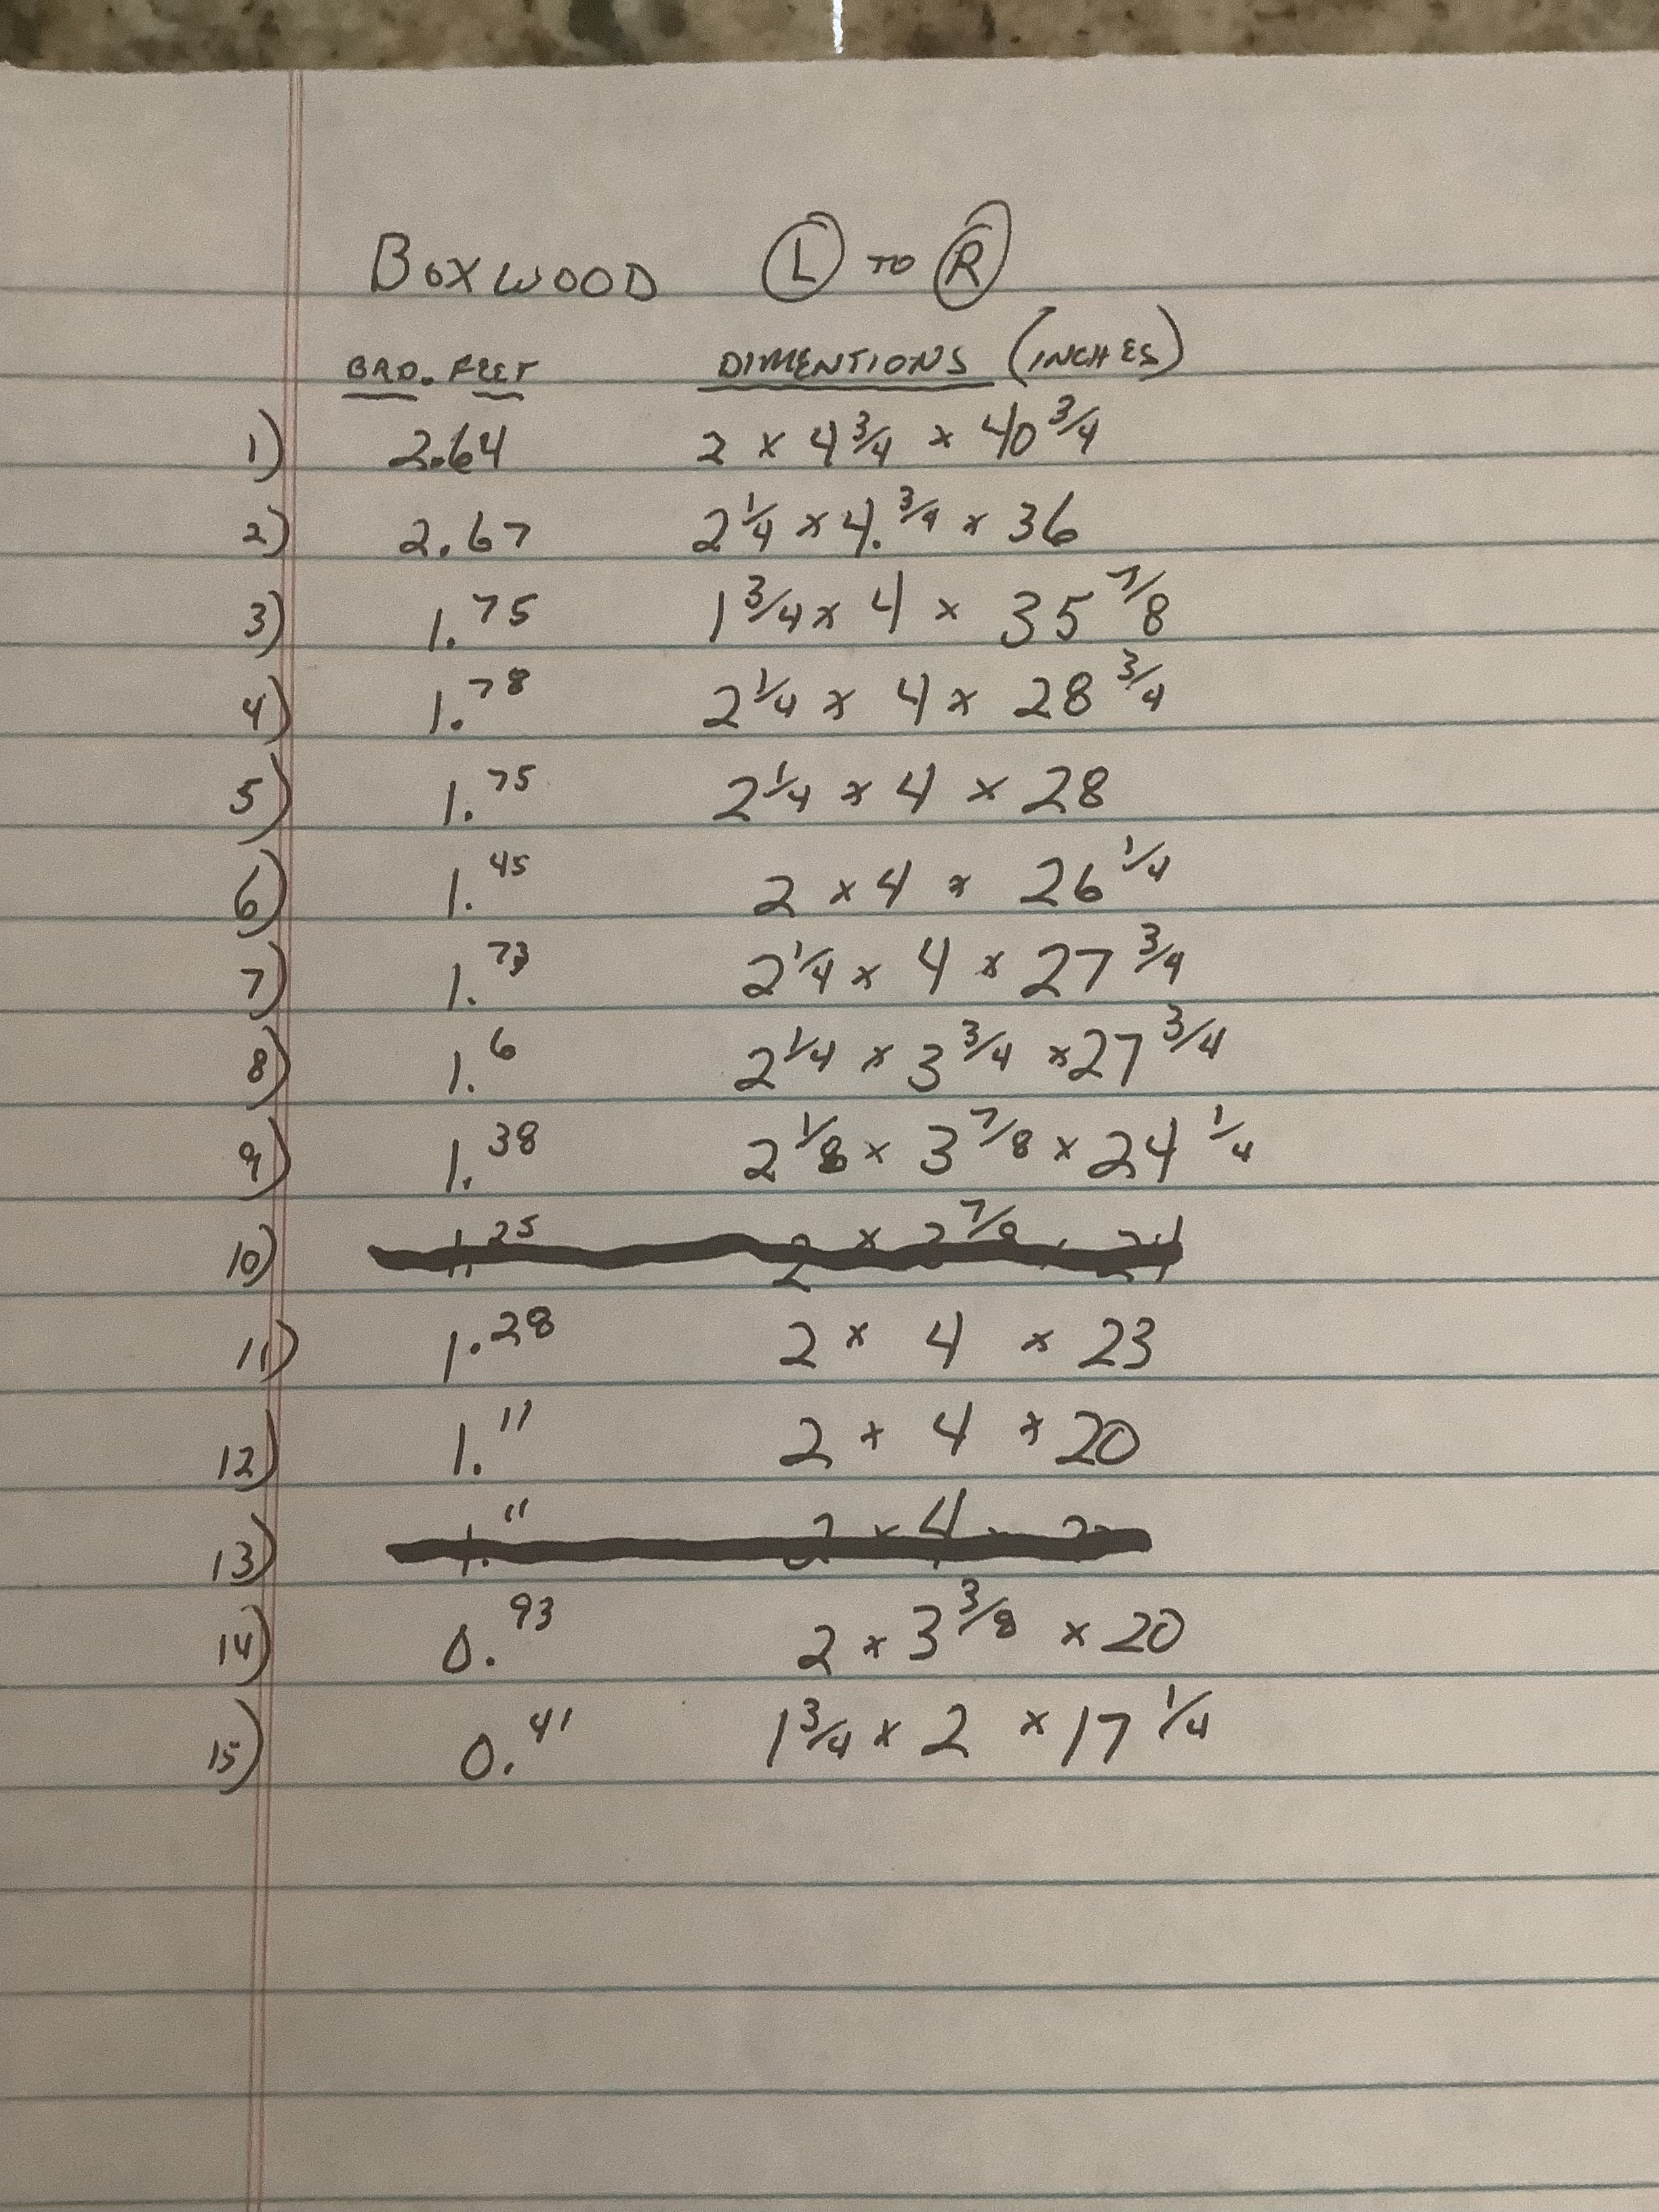 BOXWOOD L TO R
BRD. FEET DIMENTIONS (INCHES)
1) 2.64 2 x 4 3/4 x 40 3/4
2) 2.67 2 1/4 x 4. 3/4 x 36
3) 1.75 1 3/4 x 4 x 35 7/8
4) 1.78 2 1/4 x 4 x 28 3/4
5) 1.75 2 1/4 x 4 x 28
6) 1.45 2 x 4 x 26 1/4
7) 1.73 2 1/4 x 4 x 27 3/4
8) 1.6 2 1/4 x 3 3/4 x 27 3/4
9) 1.38 2 1/8 x 3 7/8 x 24 1/4
10) 1.25 2 x
11) 1.28 2 x 4 x 23
12) 1.11 2 x 4 x 20
13) 1.11 2 x 4
14) 0.93 2 x 3 3/8 x 20
15) 0.41 1 3/4 x 2 x 17 1/4